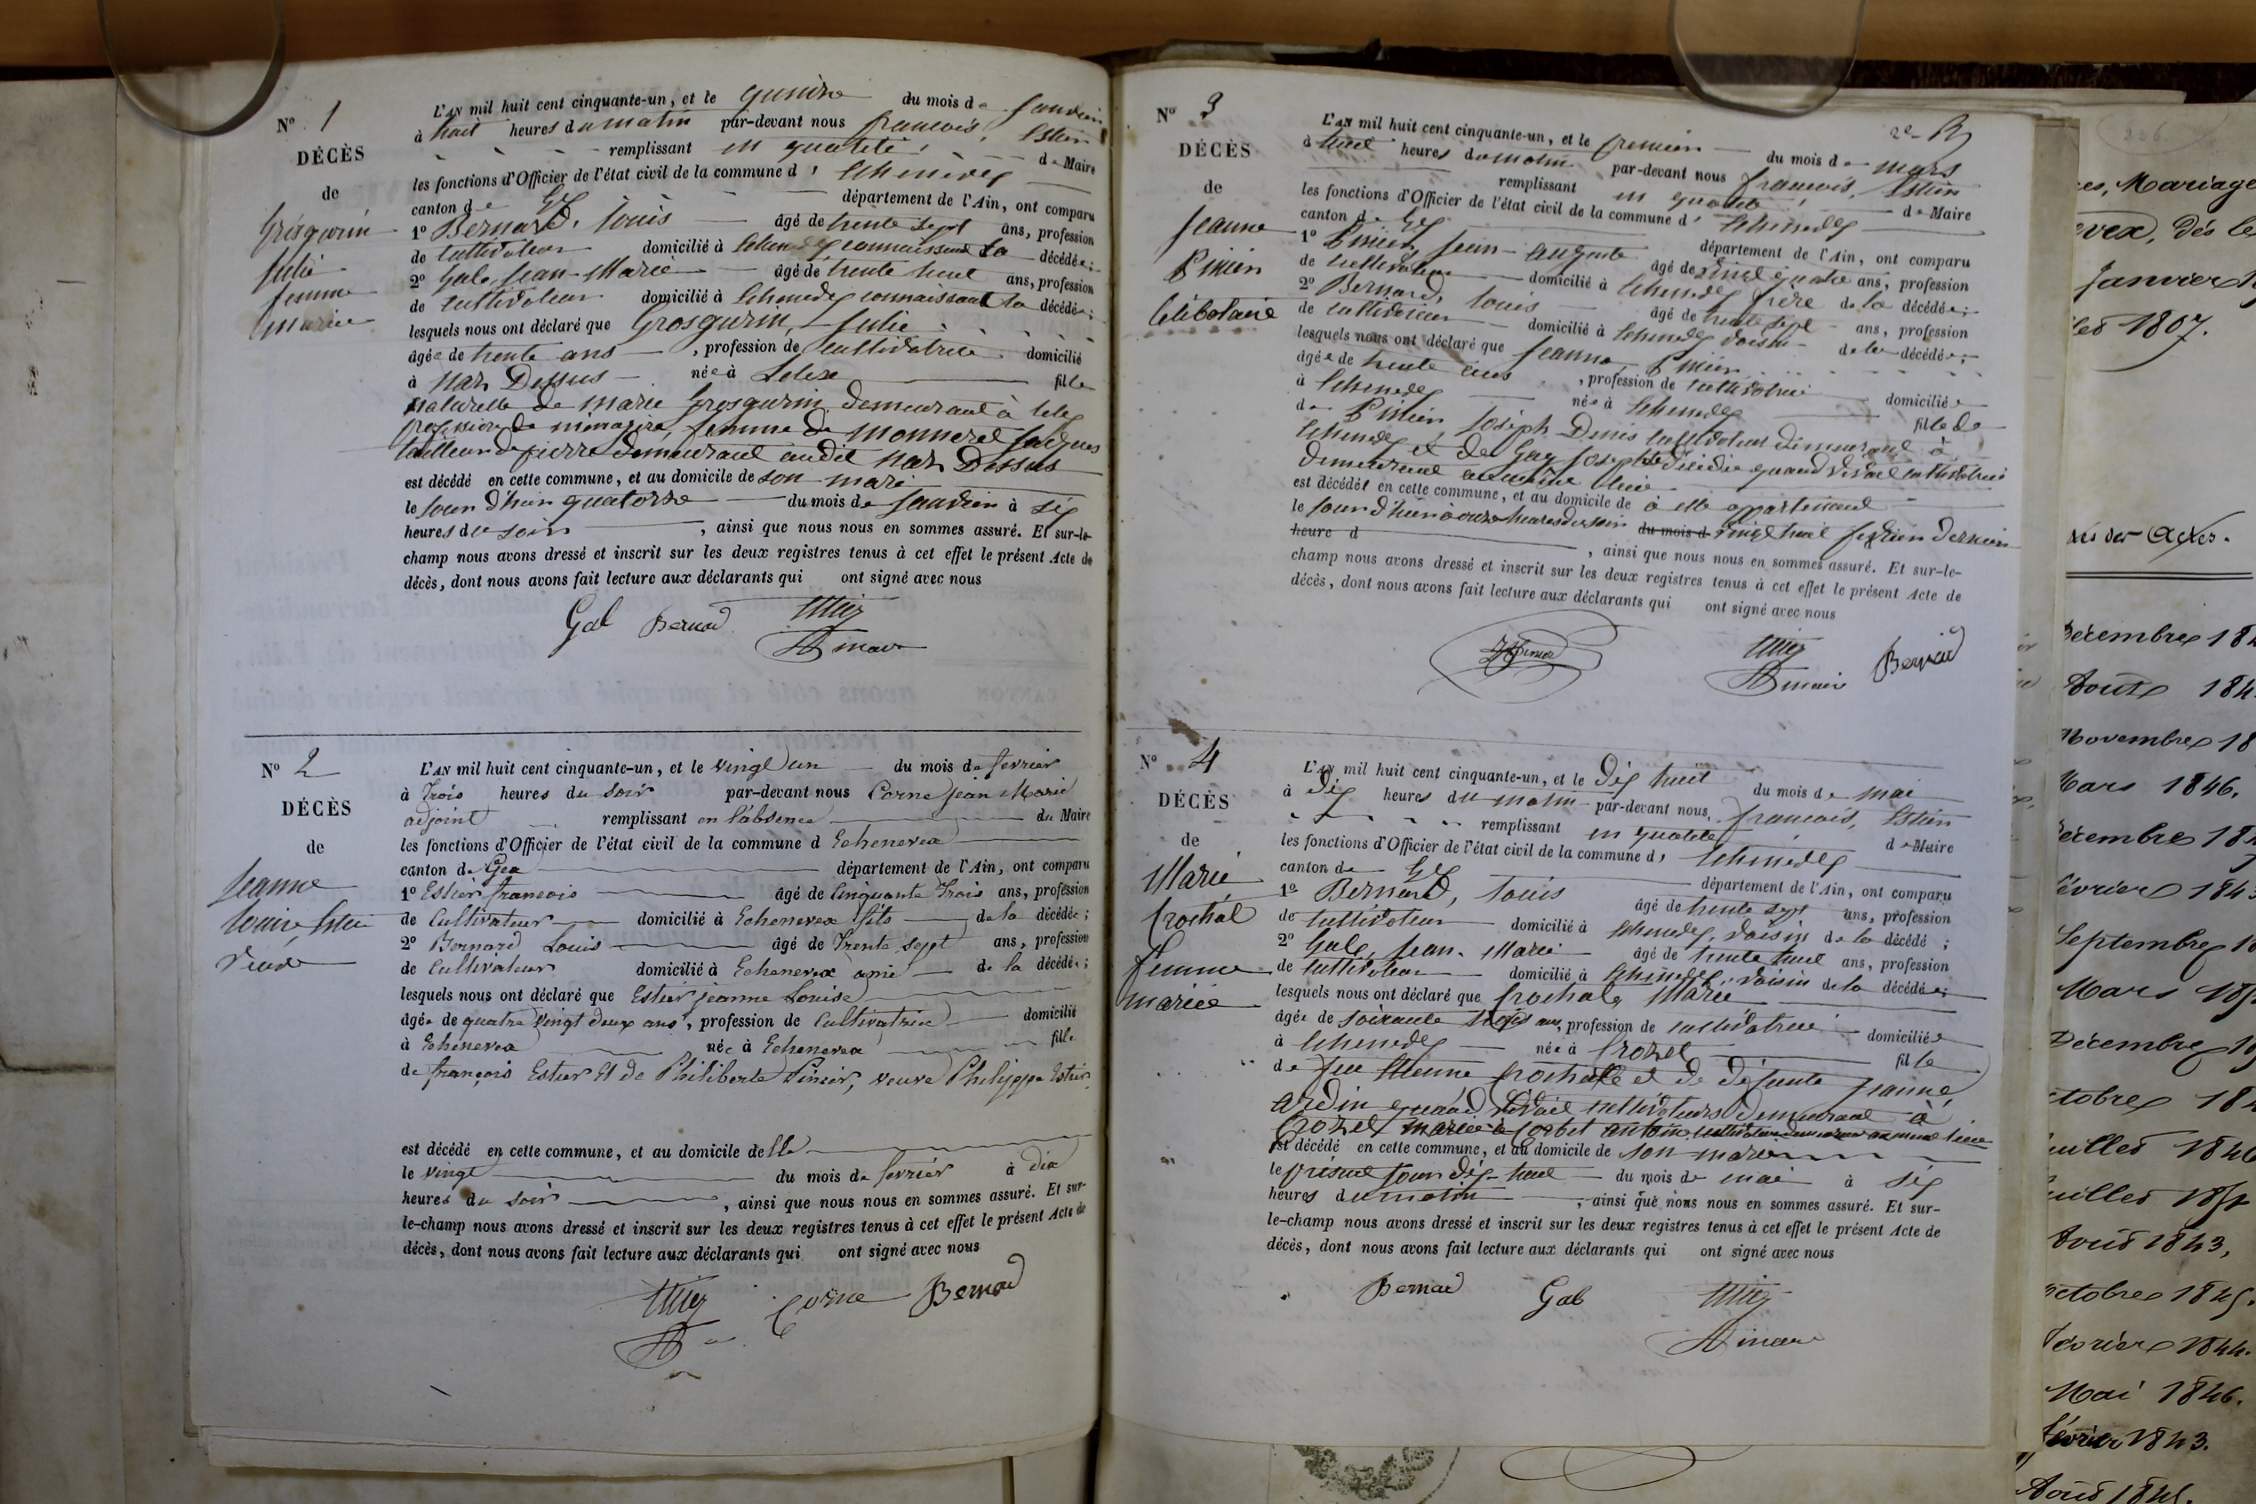 N° 1
DÉCÈS
de
Grosgurin
Julie
femme
mariée
L'AN mil huit cent cinquante-un, et le quinze du mois de Janvier
à huit heures du matin par-devant nous francois, Estier
remplissant en qualité de Maire
les fonctions d'Officier de l'état civil de la commune d' Echenevex
canton de Gex département de l'Ain, ont comparu
1° Bernard, Louis âgé de trente sept ans, profession
de cultivateur domicilié à Echenevex connaissant la décédée;
2° Gale, Jean-Marie âgé de trente huit ans, profession
de cultivateur domicilié à Echenevex connaissant la décédée;
lesquels nous ont déclaré que Grosgurin, Julie
âgée de trente ans, profession de cultivatrice domicilié
à Naz Dessus née à Lelex fille
naturelle de marie Grosgurin demeurant à Lelex
profession de menagère, femme de Monneret Jacques
tailleur de pierre demeurant audit Naz Dessus
est décédé en cette commune, et au domicile de son mari
le jour d'hier quatorze du mois de Janvier à six
heures du soir, ainsi que nous nous en sommes assuré. Et sur-le-
champ nous avons dressé et inscrit sur les deux registres tenus à cet effet le présent Acte de
décès, dont nous avons fait lecture aux déclarants qui ont signé avec nous
Gal Bernard
N° 2
DÉCÈS
de
Jeanne
Louise Estier
Veuve
L'AN mil huit cent cinquante-un, et le vingt un du mois de fevrier
à Trois heures du soir par-devant nous Corne Jean Marie
adjoint remplissant en l'absence du Maire
les fonctions d'Officier de l'état civil de la commune d Echenevex
canton de Gex département de l'Ain, ont comparu
1° Estier françois âgé de Cinquante Trois ans, profession
de Cultivateur domicilié à Echenevex fils de la décédée;
2° Bernard Louis âgé de Trente sept ans, profession
de Cultivateur domicilié à Echenevex ami de la décédée;
lesquels nous ont déclaré que Estier jeanne Louise
âgée de quatre vingt deux ans, profession de Cultivatrice domicilié
à Echenevex née à Echenevex fille
de françois Estier Et de Philiberte Pinier, veuve Philippe Estier
est décédé en cette commune, et au domicile delle
le vingt du mois de fevrier à dix
heures du soir, ainsi que nous nous en sommes assuré. Et sur-
le-champ nous avons dressé et inscrit sur les deux registres tenus à cet effet le présent Acte de
décès, dont nous avons fait lecture aux déclarants qui ont signé avec nous
Corne Bernard
N° 3
2e
DÉCÈS
de
Jeanne
Pinier
Célibataire
L'AN mil huit cent cinquante-un, et le premier du mois de mars
à huit heures du matin par-devant nous francois, Estier
remplissant en qualité de Maire
les fonctions d'Officier de l'état civil de la commune d' Echenevex
canton de Gex département de l'Ain, ont comparu
1° Pinier, Jean-auguste âgé de vingt quatre ans, profession
de cultivateur domicilié à Echenevex frère de la décédée;
2° Bernard, Louis âgé de trente sept ans, profession
de cultivateur domicilié à Echenevex voisin de la décédée;
lesquels nous ont déclaré que Jeanne Pinier
âgée de trente ans, profession de cultivatrice domiciliée
à Echenevex née à Echenevex fille de
de Pinier, Joseph Denis cultivateur demeurant à
Echenevex et de Gay Josephte décédée quand vivait cultivatrice
demeurant au même lieu
est décédée en cette commune, et au domicile de à elle appartenant
le jour d'hier à onze heures du soir du mois d vingt huit fevrier dernier
heure d, ainsi que nous nous en sommes assuré. Et sur-le-
champ nous avons dressé et inscrit sur les deux registres tenus à cet effet le présent Acte de
décès, dont nous avons fait lecture aux déclarants qui ont signé avec nous
Bernard
N° 4
DÉCÈS
de
Marie
Crochat
femme
mariée
L'AN mil huit cent cinquante-un, et le dix huit du mois de mai
à dix heures du matin par-devant nous, francois, Estier
remplissant en qualité de Maire
les fonctions d'Officier de l'état civil de la commune d' Echenevex
canton de Gex département de l'Ain, ont comparu
1° Bernard, Louis âgé de trente sept ans, profession
de cultivateur domicilié à Echenevex, voisin de la décédé;
2° Gale, Jean-Marie âgé de trente huit ans, profession
de cultivateur domicilié à Echenevex, voisin de la décédée;
lesquels nous ont déclaré que Marie
âgée de soixante ans, profession de cultivatrice domiciliée
à Echenevex née à Crozet fille
de feu Etienne et de défunte Jeanne
quand vivait cultivateurs demeurant à
Crozet mariée à Corbet antoine cultivateur demeurant au même lieu
est décédé en cette commune, et au domicile de son mari
le présent jour dix-huit du mois de mai à six
heures du matin, ainsi que nous nous en sommes assuré. Et sur-
le-champ nous avons dressé et inscrit sur les deux registres tenus à cet effet le présent Acte de
décès, dont nous avons fait lecture aux déclarants qui ont signé avec nous
Bernard Gal
Mariage
evex, dès le
Janvier
1807.
des Actes.
Décembre 184
Août 184
Novembre 18
Mars 1846.
Décembre 18
Février 184
Septembre 18
Mars 18
Décembre 18
ctobre 184
uillet 1846
uillet 18
Août 1843,
octobre 1845.
Février 1844.
Mai 1846.
février 1843.
Août 184